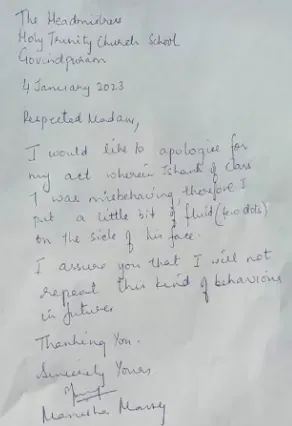 The Headmistress
Holy Trinity Church School
Govindpuram
4 January 2023
Respected Madam,
I would like to apologise for
my act wherein Ishant of class
1 was misbehaving, therefore I
put a little bit of fluid (two dots)
on the side of his face.
I assure you that I will not
repeat this kind of behaviour
in future.
Thanking You.
Sincerely Yours
Manisha Massey